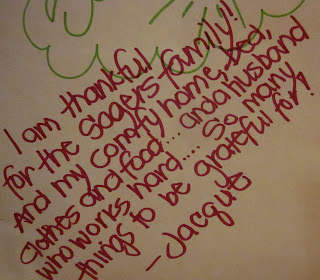 I am thankful
for the Sagers family!!
And my comfy home, bed,
clothes and food... and a husband
who works hard.... So many
things to be grateful for!
-Jacque